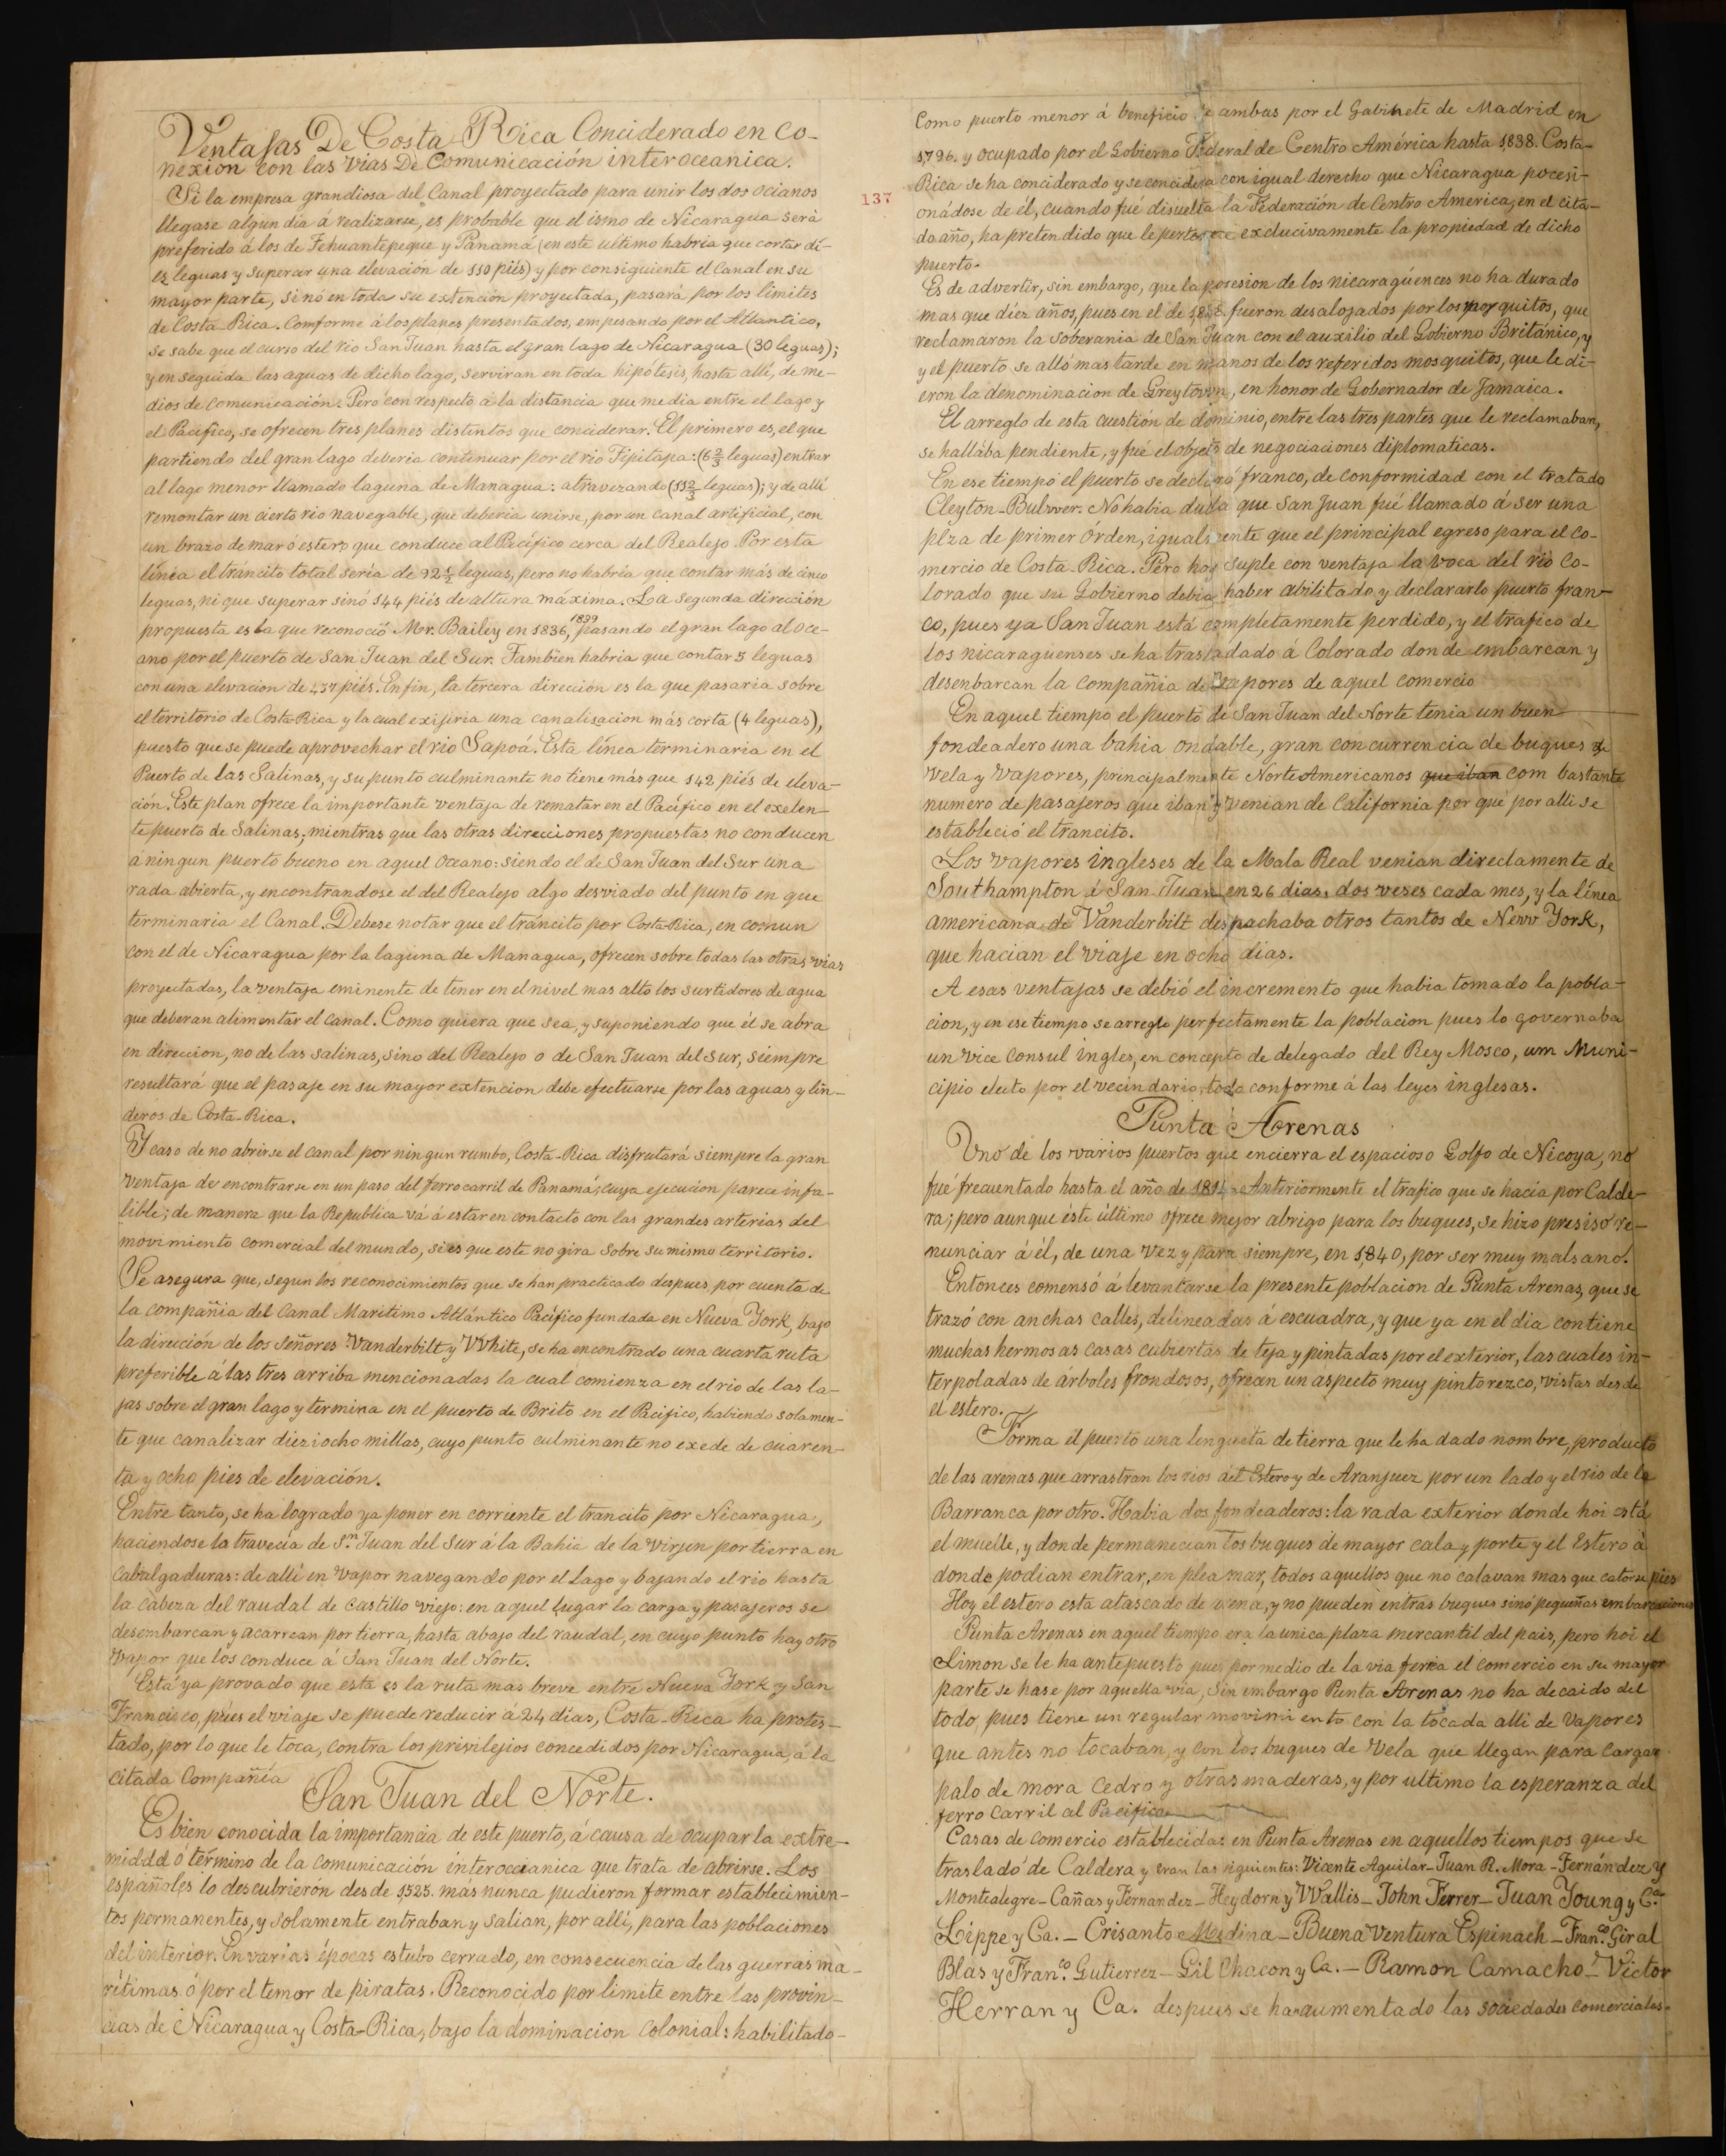 Ventajas De Costa Rica Conciderado en co-
nexion con las vias De Comunicación interoceanica.
Si la empresa grandiosa del Canal proyectado para unir los dos ocianos
llegase algun dia á realizarse, es probable que el ismo de Nicaragua será
preferido á los de Tehuantepeque y Panamá (en este ultimo habria que cortar di-
ez leguas y superar una elevación de 110 piés) y por consiguiente el Canal en su
mayor parte, sinó en toda su extención proyectada, pasará por los limites
de Costa Rica. Comforme á los planes presentados, empesando por el Atlantico,
se sabe que el curso del rio San Juan hasta el gran lago de Nicaragua (30 leguas);
y en seguida las aguas de dicho lago, serviran en toda hipótesis, hasta allí, de me-
dios de comunicación. Pero con respecto á la distancia que media entre el lago y
el Pacífico, se ofrecen tres planes distintos que conciderar. El primero es, el que
partiendo del gran lago deberia continuar por el rio Tipitapa: (6 2/3 leguas) entrar
al lago menor llamado laguna de Managua: atravezando (11 2/3 leguas); y de allí
remontar un cierto rio navegable, que deberia unirse, por un canal artificial, con
un brazo de mar ó estero que conduce al Pacífico cerca del Realejo. Por esta
línea el tráncito total seria de 92 1/2 leguas, pero no habria que contar más de cinco
leguas, ni que superar sinó 144 piés de altura máxima. La segunda dirección
propuesta es la que reconoció Mr. Bailey en 1836, 1899 pasando el gran lago al oce-
ano por el puerto de San Juan del Sur. Tambien habria que contar 5 leguas
con una elevacion de 437 piés. En fin, la tercera direción es la que pasaria sobre
el territorio de Costa-Rica y la cual exijiria una canalisacion más corta (4 leguas),
puesto que se puede aprovechar el rio Sapoá. Esta línea terminaria en el
Puerto de las Salinas, y su punto culminante no tiene más que 142 piés de eleva-
ción. Este plan ofrece la importante ventaja de rematar en el Pacífico en el exelen-
te puerto de Salinas; mientras que las otras direcciones propuestas no conducen
a ningun puerto bueno en aquel oceano: siendo el de San Juan del Sur una
rada abierta, y encontrandose el del Realejo algo desviado del punto en que
terminaria el Canal. Debese notar que el tráncito por Costa Rica, en comun
con el de Nicaragua por la laguna de Managua, ofrecen sobre todas las otras vias
proyectadas, la ventaja eminente de tener en el nivel mas alto los surtidores de agua
que deberan alimentar el canal. Como quiera que sea, y suponiendo que él se abra
en direccion, no de las salinas, sino del Realejo o de San Juan del Sur, siempre
resultará que el pasaje en su mayor extencion debe efectuarse por las aguas y lin-
deros de Costa-Rica.
Y caso de no abrirse el canal por ningun rumbo, Costa-Rica disfrutará siempre la gran
ventaja de encontrarse en un paso del ferrocarril de Panamá, cuya ejecucion parece infa-
lible; de manera que la Republica vá á estar en contacto con las grandes arterias del
movimiento comercial del mundo, si es que este no gira sobre su mismo territorio.
Se asegura que, segun los reconocimientos que se han practicado despues por cuenta de
la compañia del Canal Maritimo Atlántico Pacífico fundada en Nueva York, bajo
la dirección de los Señores Vanderbilt y White, se ha encontrado una cuarta ruta
preferible á las tres arriba mencionadas la cual comienza en el rio de las la-
jas sobre el gran lago y termina en el puerto de Brito en el Pacifico, habiendo solamen-
te que canalizar dieziocho millas, cuyo punto culminante no exede de cuaren-
ta y ocho pies de elevación.
Entre tanto, se ha logrado ya poner en corriente el trancito por Nicaragua,
haciendose la travecía de Sn. Juan del Sur á la Bahia de la Virjen por tierra en
cabalgaduras: de allí en vapor navegando por el Lago y bajando el rio hasta
la cabeza del raudal de Castillo viejo: en aquel lugar la carga y pasajeros se
desembarcan y acarrean por tierra, hasta abajo del raudal, en cuyo punto hay otro
vapor que los conduce á San Juan del Norte.
Está ya provado que esta es la ruta mas breve entre Nueva York y San
Francisco, púes el viaje se puede reducir á 24 dias, Costa-Rica ha protes-
tado, por lo que le toca, contra los privilejios concedidos por Nicaragua, á la
citada Compañia
San Juan del Norte.
Es bien conocida la importancia de este puerto, á causa de ocupar la extre-
middd ó término de la comunicación interoceanica que trata de abrirse. Los
españoles lo descubrierón desde 1525. más nunca pudieron formar establecimien-
tos permanentes, y solamente entraban y salian, por allí, para las poblaciones
del interior. En varias épocas estubo cerrado, en consecuencia de las guerras ma-
rítimas ó por el temor de piratas. Reconocido por limite entre las provin-
cias de Nicaragua y Costa-Rica, bajo la dominacion colonial: habilitado-
137
Como puerto menor á beneficio de ambas por el Gabinete de Madrid en
1796. y ocupado por el Gobierno Federal de Centro América hasta 1838. Costa-
Rica se ha conciderado y se concidera con igual derecho que Nicaragua pocesi-
onádose de él, cuando fué disuelta la Federación de Centro America, en el cita-
do año, ha pretendido que le pertenece exclucivamente la propiedad de dicho
puerto.
Es de advertir, sin embargo, que la posesion de los nicaragüences no ha durado
mas que díez años, pues en el de fueron desalojados por los mosquitos, que
reclamaron la soberania de San Juan con el auxilio del Gobierno Británico, y
y el puerto se alló mas tarde en manos de los referidos mosquitos, que le di-
eron la denominacion de Greytown, en honor de Gobernador de Jamaica.
El arreglo de esta cuestión de dominio, entre las tres partes que le reclamaban,
se hallaba pendiente, y fué el objeto de negociaciones diplomaticas.
En ese tiempo el puerto se declaró franco, de conformidad con el tratado
Cleyton-Bulwer. No habia duda que San Juan fué llamado á ser una
plza de primer órden, igualmente que el principal egreso para el co-
mercio de Costa-Rica. Pero hoy suple con ventaja la voca del rio Co-
lorado que su Gobierno debia haber abilitado y declararlo puerto fran-
co, pues ya San Juan está completamente perdido, y el trafico de
los nicaraguenses se ha trasladado á Colorado donde embarcan y
desenbarcan la compañia de vapores de aquel comercio
En aquel tiempo el puerto de San Juan del Norte tenia un buen
fondeadero una bahia ondable, gran concurrencia de buques de
vela y vapores, principalmente Norte Americanos que iban com bastante
numero de pasajeros que iban y venian de California por que por alli se
estableció el trancito.
Los vapores ingleses de la Mala Real venian directamente de
Southampton á San Juan en 26 dias, dos veses cada mes, y la línea
americana de Vanderbilt despachaba otros tantos de New York,
que hacian el viaje en ocho dias.
A esas ventajas se debió el incremento que habia tomado la pobla-
cion, y en ese tiempo se arreglo perfectamente la poblacion pues lo governaba
un vice Consul ingles, en concepto de delegado del Rey Mosco, um Muni-
cipio electo por el vecindario, todo conforme á las leyes inglesas.
Punta Arenas
Uno de los varios puertos que encierra el espacioso Golfo de Nicoya, no
fué frecuentado hasta el año de 1814. Anteriormente el trafico que se hacia por Calde-
ra; pero aunque éste último ofrece mejor abrigo para los buques, se hizo presiso re-
nunciar á él, de una vez y para siempre, en 1,840, por ser muy malsano.
Entonces comensó á levantarse la presente poblacion de Punta Arenas, que se
trazó con anchas calles, delineadas á escuadra, y que ya en el dia contiene
muchas hermosas casas cubiertas de teja y pintadas por el exterior, las cuales in-
terpoladas de árboles frondosos, ofrecen un aspecto muy pintorezco, vistas desde
el estero.
Forma el puerto una lengüeta de tierra que le ha dado nombre, producto
de las arenas que arrastran los rios del Estero y de Aranjuez por un lado y el rio de la
Barranca por otro. Habia dos fondeaderos: la rada exterior donde hoi está
el muelle, y donde permanecian los buques de mayor cala y porte y el Estero á
donde podian entrar, en plea mar, todos aquellos que no calavan mas que catorse pies
Hoy el estero esta atascado de arena, y no pueden entrar buques sinó pequeñas embarcaciones
Punta Arenas en aquel tiempo era la unica plaza mercantil del pais, pero hoi el
Limon se le ha antepuesto pues por medio de la via ferrea el comercio en su mayor
parte se hase por aquella via, Sin embargo Punta Arenas no ha decaido del
todo, pues tiene un regular movimiento con la tocada alli de Vapores
que antes no tocaban, y con los buques de Vela que llegan para cargar
palo de mora Cedro y otras maderas, y por ultimo la esperanza del
ferro carril al Pacifico
Casas de comercio establecidas en Punta Arenas en aquellos tiempos que se
trasladó de Caldera y eran las siguientes: Vicente Aguilar-Juan R. Mora-Fernández y
Montealegre-Cañas y Fernandez-Heydorn y Wallis-John Ferrer-Juan Young y Ca.
Lippe y Ca.-Crisanto Medina-Buena Ventura Espinach-Franco. Giral
Blas y Franco. Gutierrez-Gil Chacon y Ca.-Ramon Camacho-Victor
Herran y Ca. despues se han aumentado las sociedades comerciales.